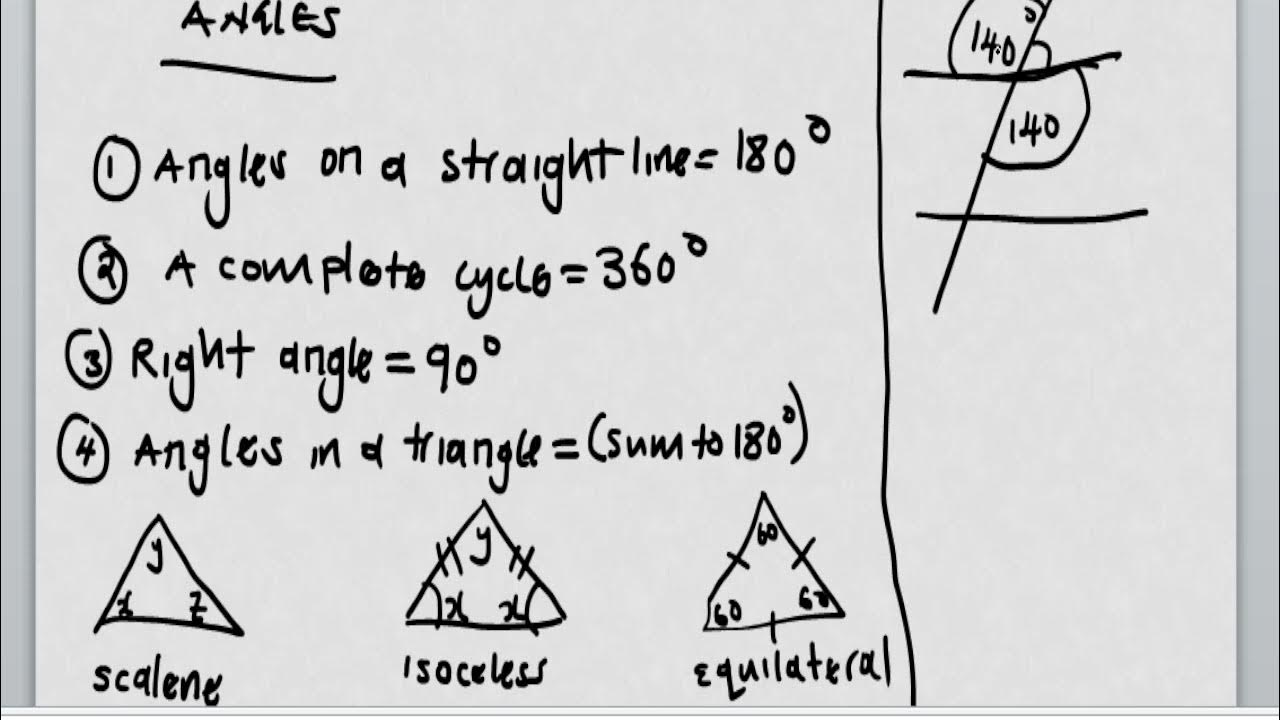 ANGLES
① Angles on a straight line = 180°
② A complete cycle = 360°
③ Right angle = 90°
④ Angles in a triangle = (sum to 180°)
y
x z
scalene
y
x x
isoceless
60
60 60
Equilateral
140°
140